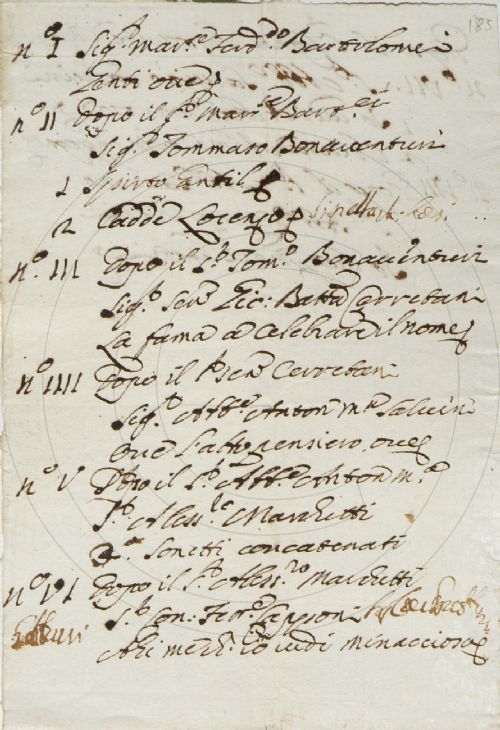 185
n.º I Sig.r Mar.se Ferd.do Bartolomei
Genti oue
n.º II Dopo il S.r Mar.se Bart.ei
Sig.r Tommaso Bonauenturi
1 Spirto Gentil
2 Cadde Lorenzo
n.º III Dopo il S.r Tom.o Bonauenturi
Sig.r Sen.re Gio: Batta Cerretani
La fama à Celebrare il nome
n.º IIII Dopo il S.r Sen.re Cerretani
Sig.r Ab.e Anton M.a Saluini
oue l'alto pensiero oue
n.º V Dopo il S.r Ab.e Anton M.a
S.r Aless.ro Marchetti
2 Sonetti concatenati
n.º VI Dopo il S.r Aless.ro Marchetti
S.r Con: Capponi
Ahi io uidi minaccioso